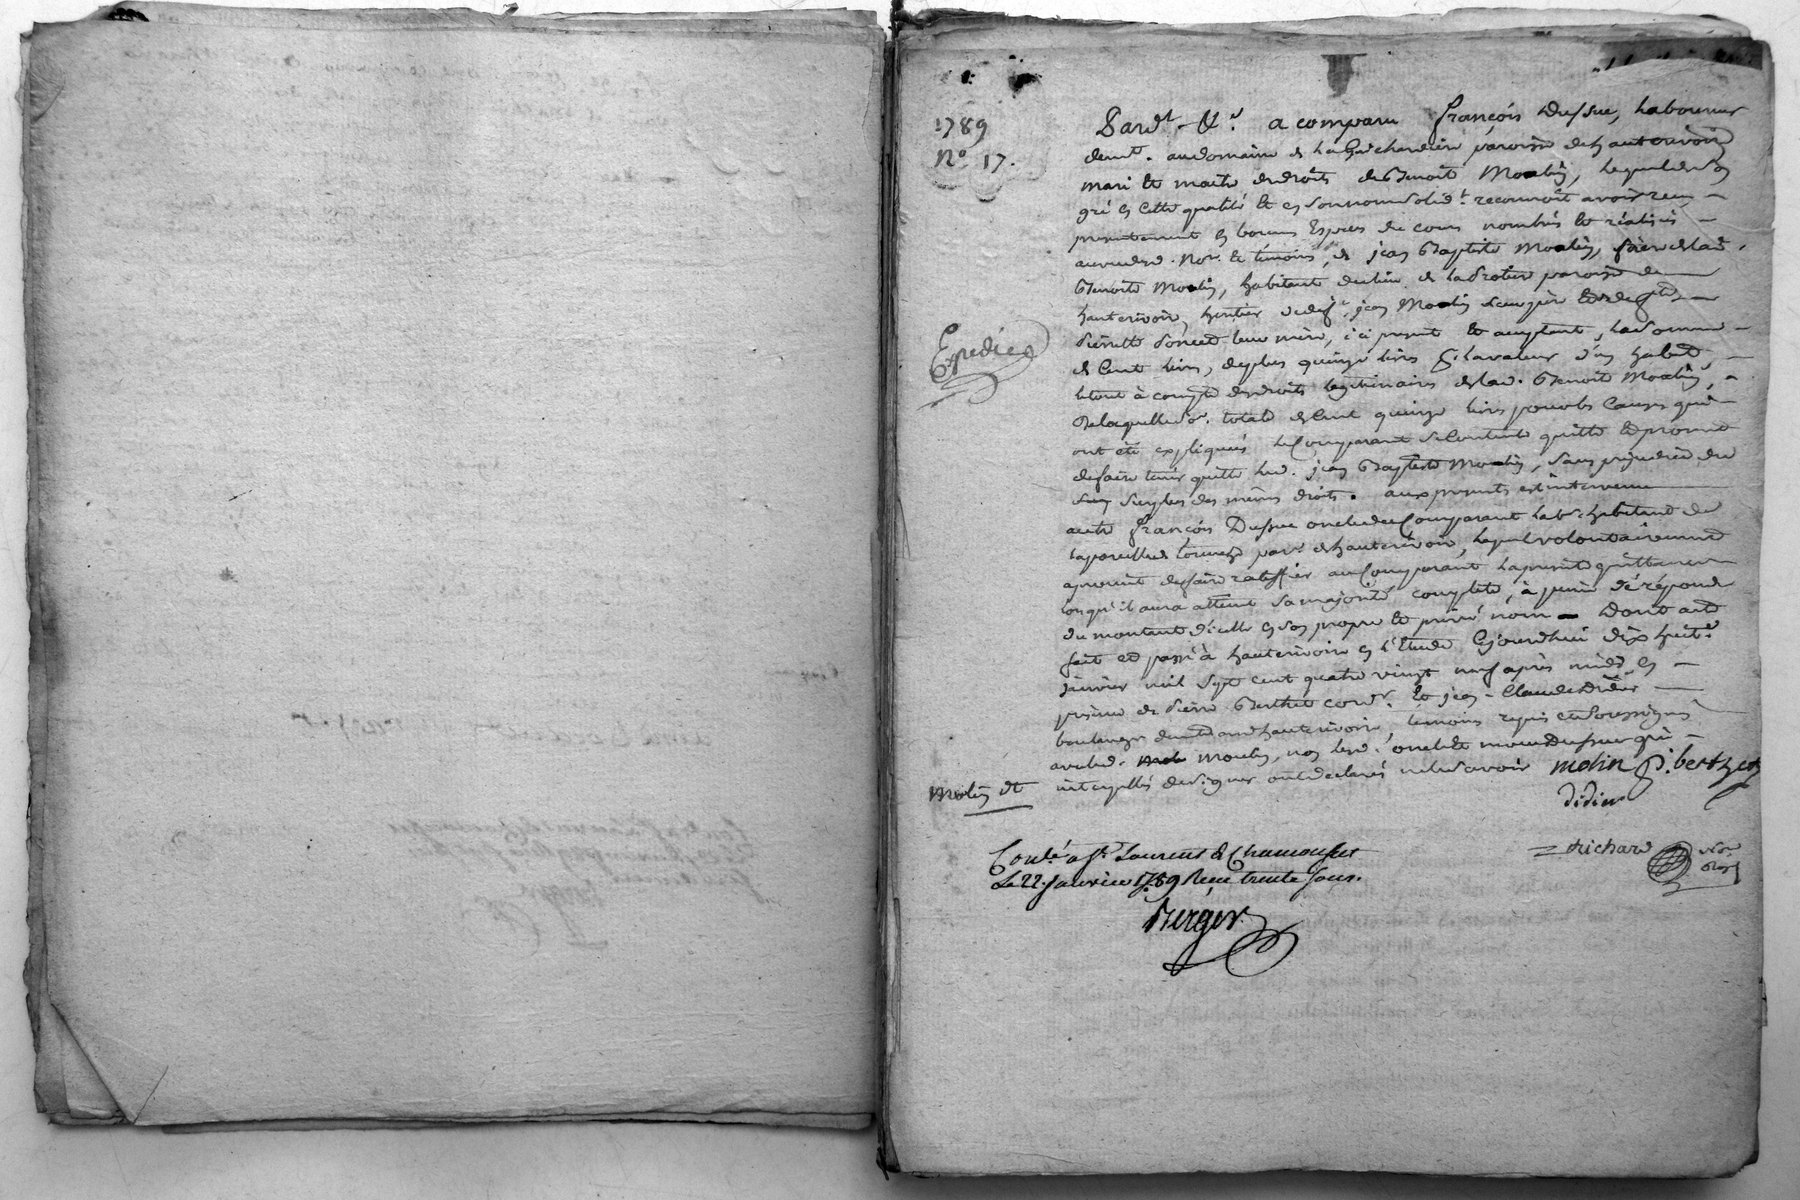 1789
N.o 17.
Expedié
Pard.t - & .r a comparu françois Dussuc, Laboureur
demt. au domaine de La Guichardiere paroisse de hauterivoire
mari et maitre des droits de Benoite Moulin, lequel de son
gré en cette qualité et en son nom solid.t reconnoit avoir reçu
presentement en bonnes Especes de cours nombrés et réalisés
au vu dud. Nore. et témoins, de jean Baptiste Moulin, frere de lad.
Benoite Moulin, habitant du lieu de paroisse de
hauterivoire, heritier de deft. jean Moulin leur pere et de defte.
Pierrette leur mere, ici present et acceptant, la somme
de Cent livres, de plus quinze livres p.r la valeur d'un habit,
le tout à compte des droits legitimaires de lad. Benoite Moulin,
De laquelle so.e totale de Cent quinze livres pour les Causes qui
ont été expliquées le Comparant se Contente quitte et promet
de faire tenir quitte led. jean Baptiste Moulin, sans prejudice du
surplus des mêmes droits. aux presentes est intervenu
autre françois Dussuc oncle du Comparant lab.r habitant de
par.e de hauterivoire, lequel volontairement
a promis de faire ratiffier au Comparant la presente quittance
lorsqu'il aura atteint sa majorité complette, à peine de répondre
du montant d'icelle en son propre et privé nom - Dont acte
fait et passé à hauterivoire en l'Etude Cejourdhui dix huit
janvier mil sept cent quatre vingt neuf après midi, en
presence de Pierre Berthet cord.r et jean - Claude Didier
boulanger demt. aud. hauterivoire, temoins requis et soussignés
avec led. Moulin, non lesd. oncle et neveu Dussuc qui
Moulin et
interpellés de signer ont declarés ne le savoir molin P. berthet
didier
Richard Nore Roy.
Con.lé a St. Laurent de Chamousset
Le 22. Janvier 1789 Reçu trente sous.
Berger